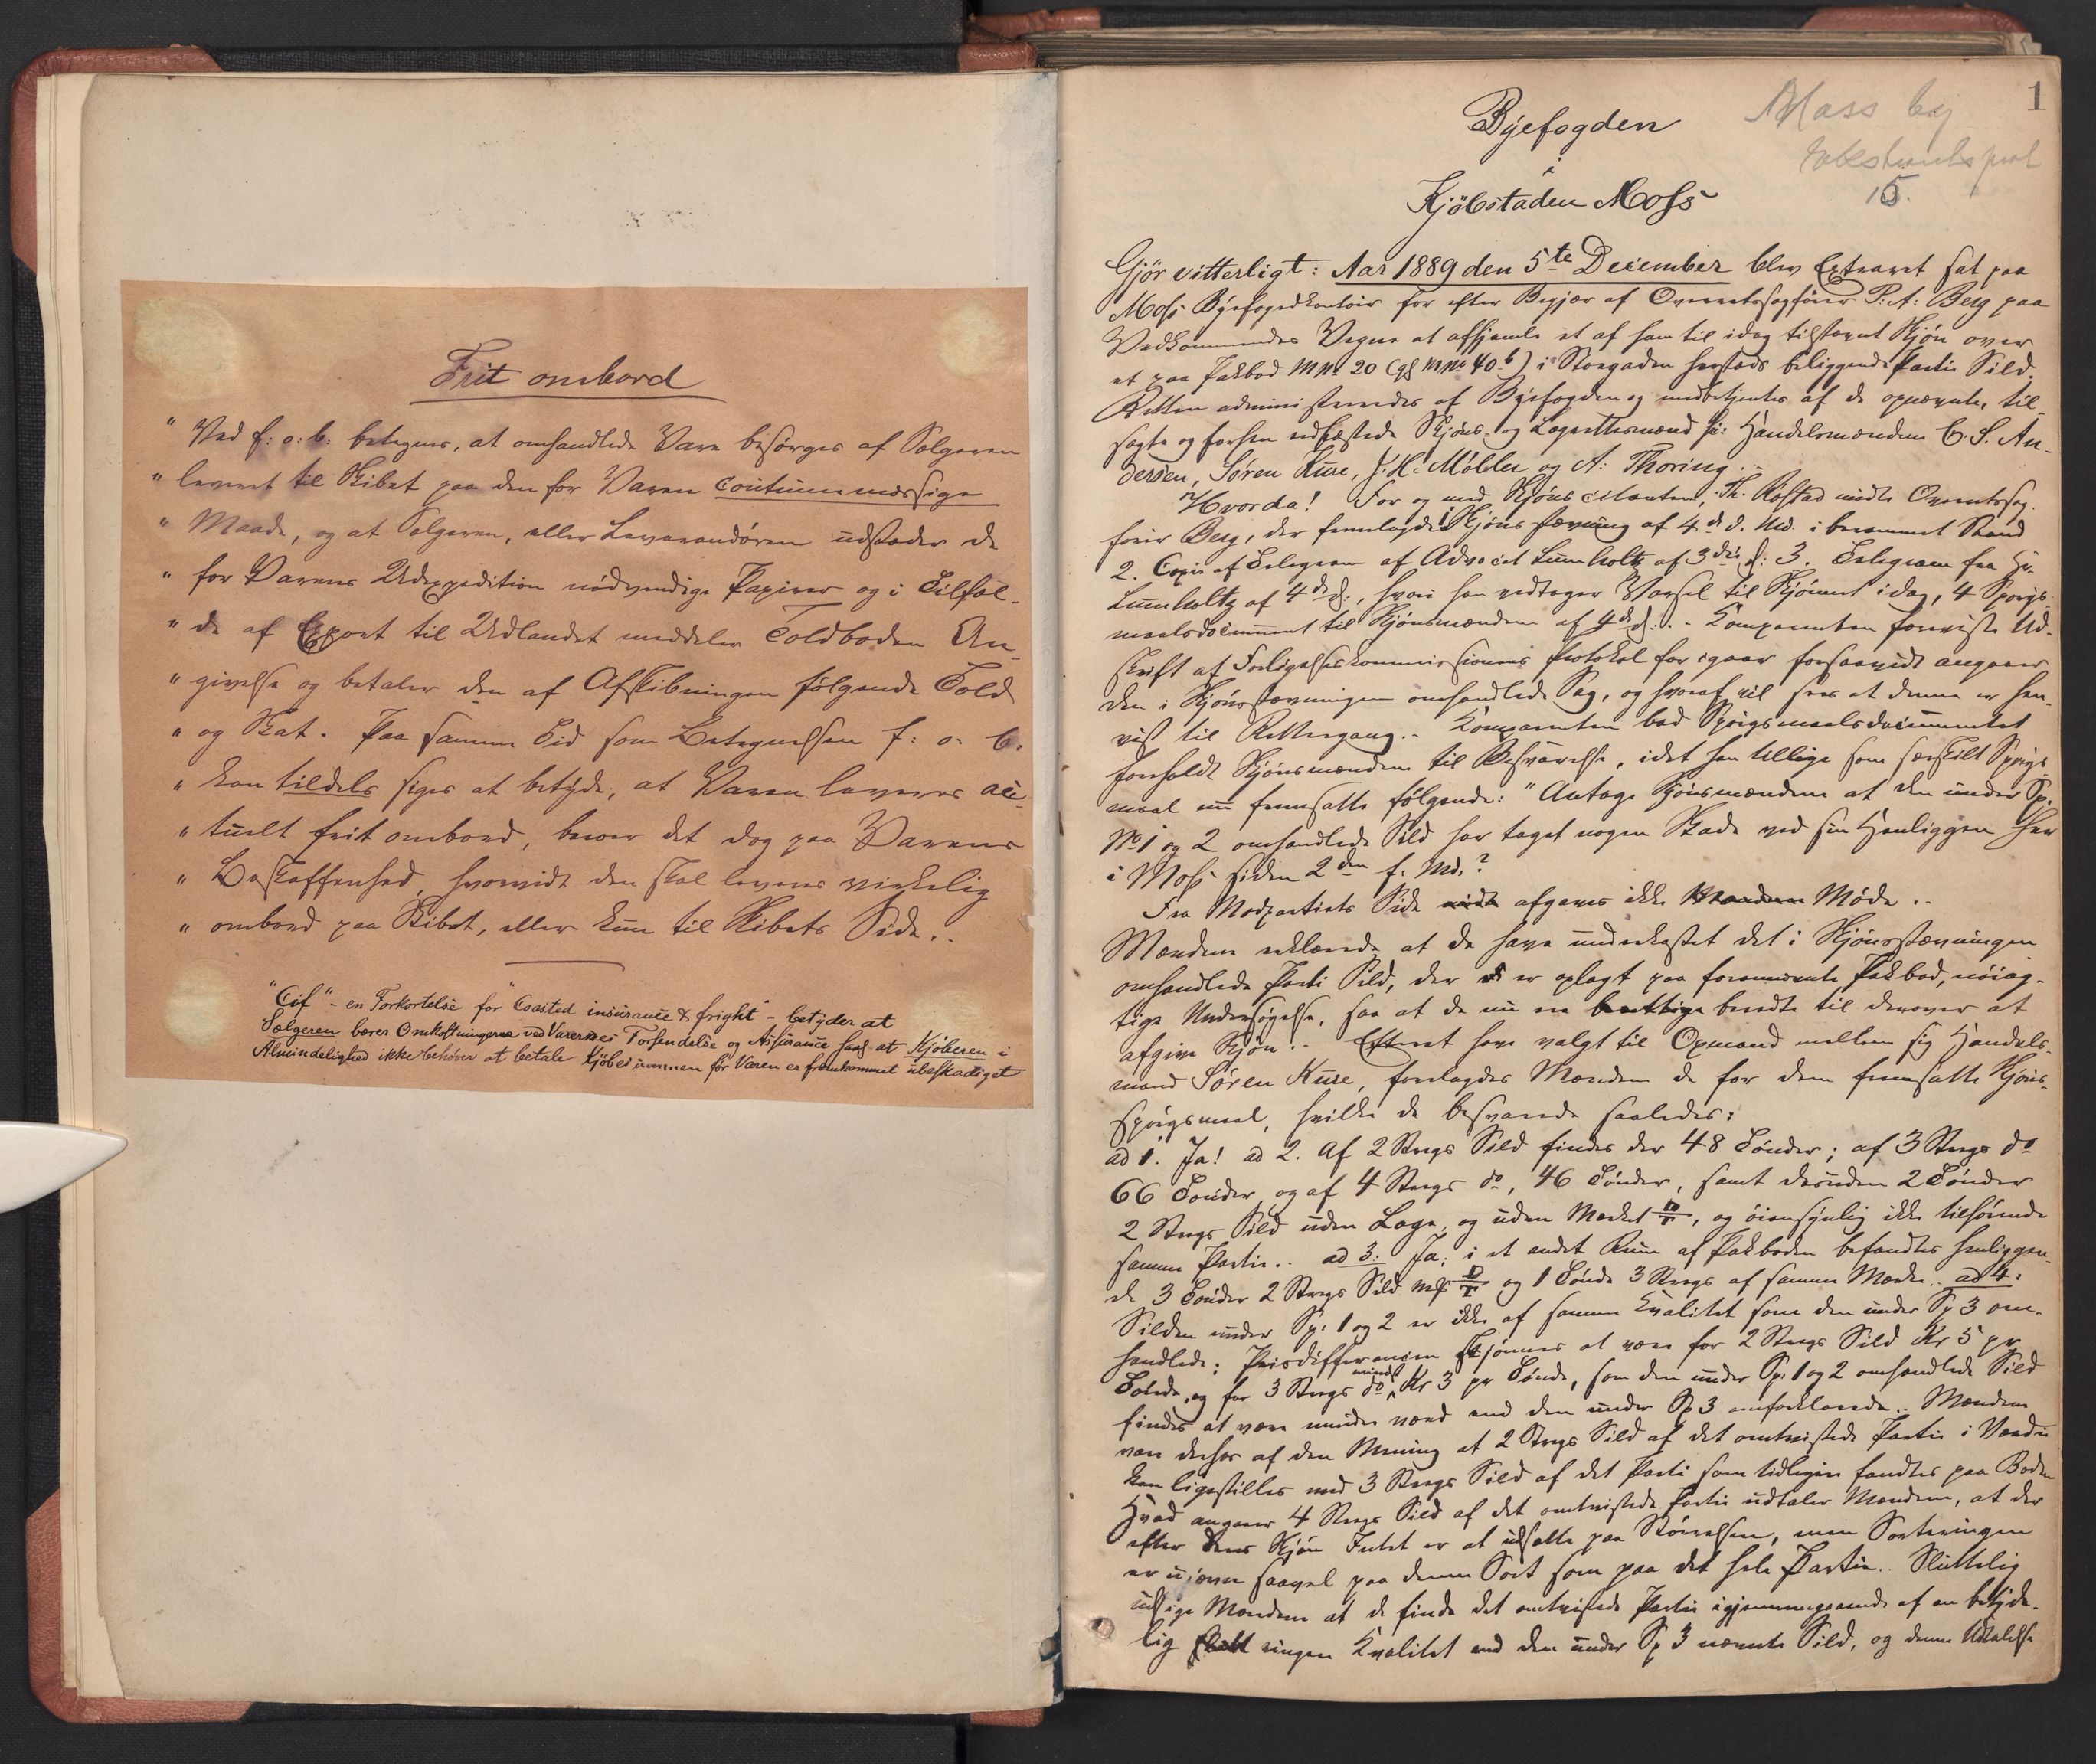 Frit ombord
" Ved f: o: b: betegnes, at omhandlede Vare besörges af Sælgeren
" leveret til Skibet paa den for Varen coutumemæssige
" Maade, og at Sælgeren, eller Leverandören udsteder de
" for Varens Udexpedition nödvendige Papirer og i Tilfæl-
" de af Export til Udlandet meddeler Toldboden An-
" givelse og betaler den af Afskibningen fölgende Told
" og Skat. Paa samme Tid som Betegnelsen f: o: b:
" kan tildels siges at betyde, at Varen leveres ac-
" tuelt frit ombord, beror det dog paa Varens
" Beskaffenhed, hvorvidt den skal leveres virkelig
" ombord paa Skibet, eller kun til Skibets Side..
"Cif" - en Forkortelse for "Coasted insurance & fright" - betyder at
Sælgeren bærer Omkostningerne ved Varernes Forsendelse og Assurance saa at Kjöberen i
Almindelighed ikke behöver at betale Kjöbesummen för Varen er fremkommet ubeskadiget
1
Moss by
15.
Byefogden
i
Kjöbstaden Moss
Gjör vitterligt: Aar 1889 den 5te December blev Extraret sat paa
Moss Byefogedkontoir for efter Begjær af Overretssagförer P: A: Berg paa
Vedkommendes Vegne at afhjemle et af ham til idag tilstævnt Skjön over
et paa Pakbod M No 20 (gl M No 40b) i Storgaden hersteds beliggende Parti Sild.
Retten administreredes af Byefogden og medbetjentes af de opnævnte, til-
sagte og forhen edfæstede Skjöns- og Lagrettesmænd ɔ: Handelsmændene C. S. An-
dersen, Sören Kure, J. H. Möller og A: Thoring..
Hvorda! For og med Skjönscitanten, Th. Röstad mödte Overretssag-
förer Berg, der fremlagde 1 Skjönsstævning af 4de d. Md. i beram­met Stand
2. Copi af Telegram af Advocat Lumholtz af 3die ds: 3. Telegram fra Hr.
Lumholtz af 4de ds:, hvori han vedtager Varsel til Skjönnet idag, 4 Spörgs-
maalsdocument til Skjönsmændene af 4de ds:.- Comparenten foreviste Ud-
skrift af Forligelseskommissionens Protokol for igaar forsaavidt angaar
den i Skjönsstævningen omhandlede Sag, og hvoraf vil sees at denne er hen-
vist til Rettergang.- Comparenten bad Spörgsmaalsdocumentet
foreholdt Skjönsmændene til Besvarelse, idet han tillige som særskilt Spörgs-
maal nu fremsatte fölgende: "Antage Skjönsmændene at den under Sp.
No 1 og 2 omhandlede Sild har taget nogen Skade ved sin Henliggen her
i Moss siden 2den f. Md.?
Fra Modpartiets Side afgaves ikke Möde..
Mændene erklærede at de have underkastet det i Skjönsstævningen
omhandlede Parti Sild, der er oplagt paa forannævnte Pakbod, nöiag-
tige Undersögelse, saa at de nu ere beredte til derover at
afgive Skjön.- Efterat have valgt til Opmand mellem sig Handels-
mand Sören Kure, forelagdes Mændene de for dem fremsatte Skjöns-
spörgsmaal, hvilke de besvarede saaledes:
ad 1. Ja! ad 2. Af 2 Stregs Sild findes der 48 Tönder; af 3 Stregs do
66 Tönder, og af 4 Stregs do, 46 Tönder, samt desuden 2 Tönder
2 Stregs Sild uden Lage, og uden Mærket D/T, og öiensynlig ikke tilhörende
samme Parti.. ad 3. Ja; i et andet Rum af Pakboden befandtes henliggen-
de 3 Tönder 2 Stregs Sild mk D/T og 1 Tönde 3 Stregs af samme Mærke.. ad 4:
Silden under Sp: 1 og 2 er ikke af samme Kvalitet som den under Sp 3 om-
handlede; Prisdifferancen skjönnes at være for 2 Stregs Sild Kr 5 pr
Tönde, og for 3 Stregs do mindst Kr 3 pr Tönde, som den under Sp: 1 og 2 omhandlede Sild
findes at være mindre værd end den under Sp 3 omforklarede.. Mændene
vare derfor af den Mening at 2 Stregs Sild af det omtvistede Parti i Værdi
kan ligestilles med 3 Stregs Sild af det Parti som tidligere fandtes paa Boden
Hvad angaar 4 Stregs Sild af det omtvistede Parti udtaler Mændene, at der
efter deres Skjön Intet er at udsætte paa Störrelsen, men Sorteringen
er ujævn saavel paa denne Sort som paa det hele Parti.. Sluttelig
udsige Mændene at de finde det omtvistede Parti igjennemgaaende af en betyde-
lig ringere Kvalitet end den under Sp 3 nævnte Sild, og denne Udtalelse